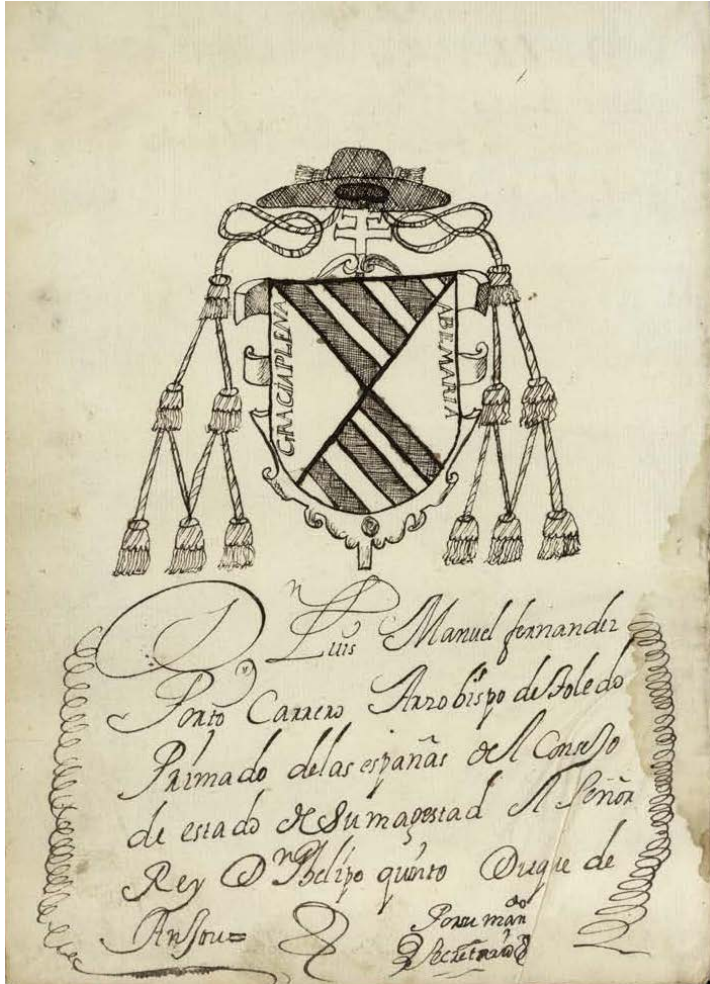 GRACIA PLENA
ABE MARIA
Dⁿ Luis Manuel fernandez
Porto Carrero Arzobispo de toledo
Primado de las españas del Consejo
de estado de su magestad el Señor
Rey Dⁿ Phelipo quinto Duque de
Anjou=
Por su mandᵒ
Secretario